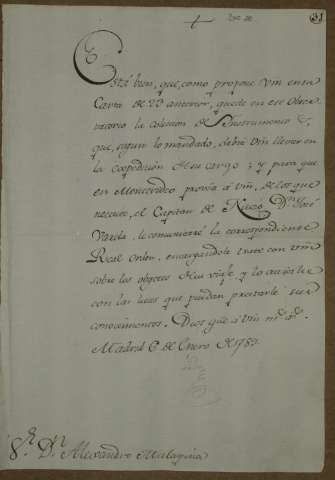 +
91
Está bien, que, como propone Vm en su
Carta de 23 anterior, quede en ese Obser
vatorio la coleccion de Instrumentos
que, segun lo mandado, debia Vm llevar en
la expedicion de su cargo; y para que
en Montevideo provea à Vm, de los que
necesite, el Capitan de Navio Dn. José
Varela, le comunicaré la correspondiente
Real Orden, encargandole trate con Vm
sobre los objetos de su viage y lo auxilie
con las luces que puedan prestarle sus
conocimientos. Dios gue à Vm ms. as.
Madrid 6 de Enero de 1789.
Sr. Dn. Alexandro Malaspina